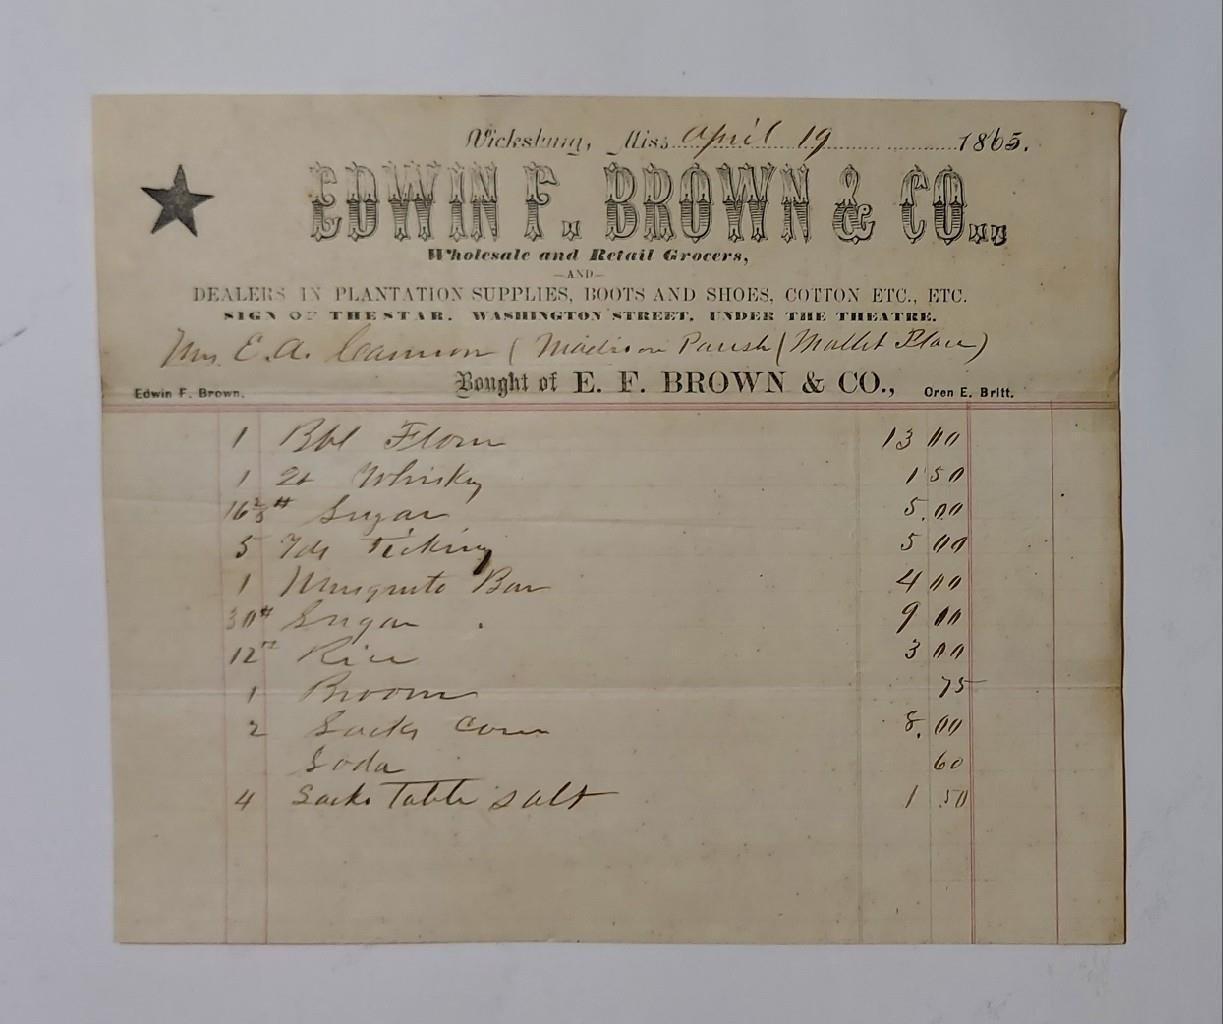 Vicksburg, Miss. April 19 1865.
EDWIN F. BROWN & CO.,
Wholesale and Retail Grocers,
—AND—
DEALERS IN PLANTATION SUPPLIES, BOOTS AND SHOES, COTTON ETC., ETC.
SIGN OF THE STAR. WASHINGTON STREET, UNDER THE THEATRE.
Mrs. E. A. Cannon (Madison Parish (Mallet Place)
Edwin F. Brown. Bought of E. F. BROWN & CO., Oren E. Britt.
1 Bbl Flour 13 00
1 Qt Whisky 1 50
16 2/3 # Sugar 5.00
5 Yds Ticking 5 00
1 Musquito Bar 4 00
30# Sugar 9 00
12 Rice 3 00
1 Broom 75
2 Sacks Corn 8.00
Soda 60
4 Sacks Table Salt 1 50